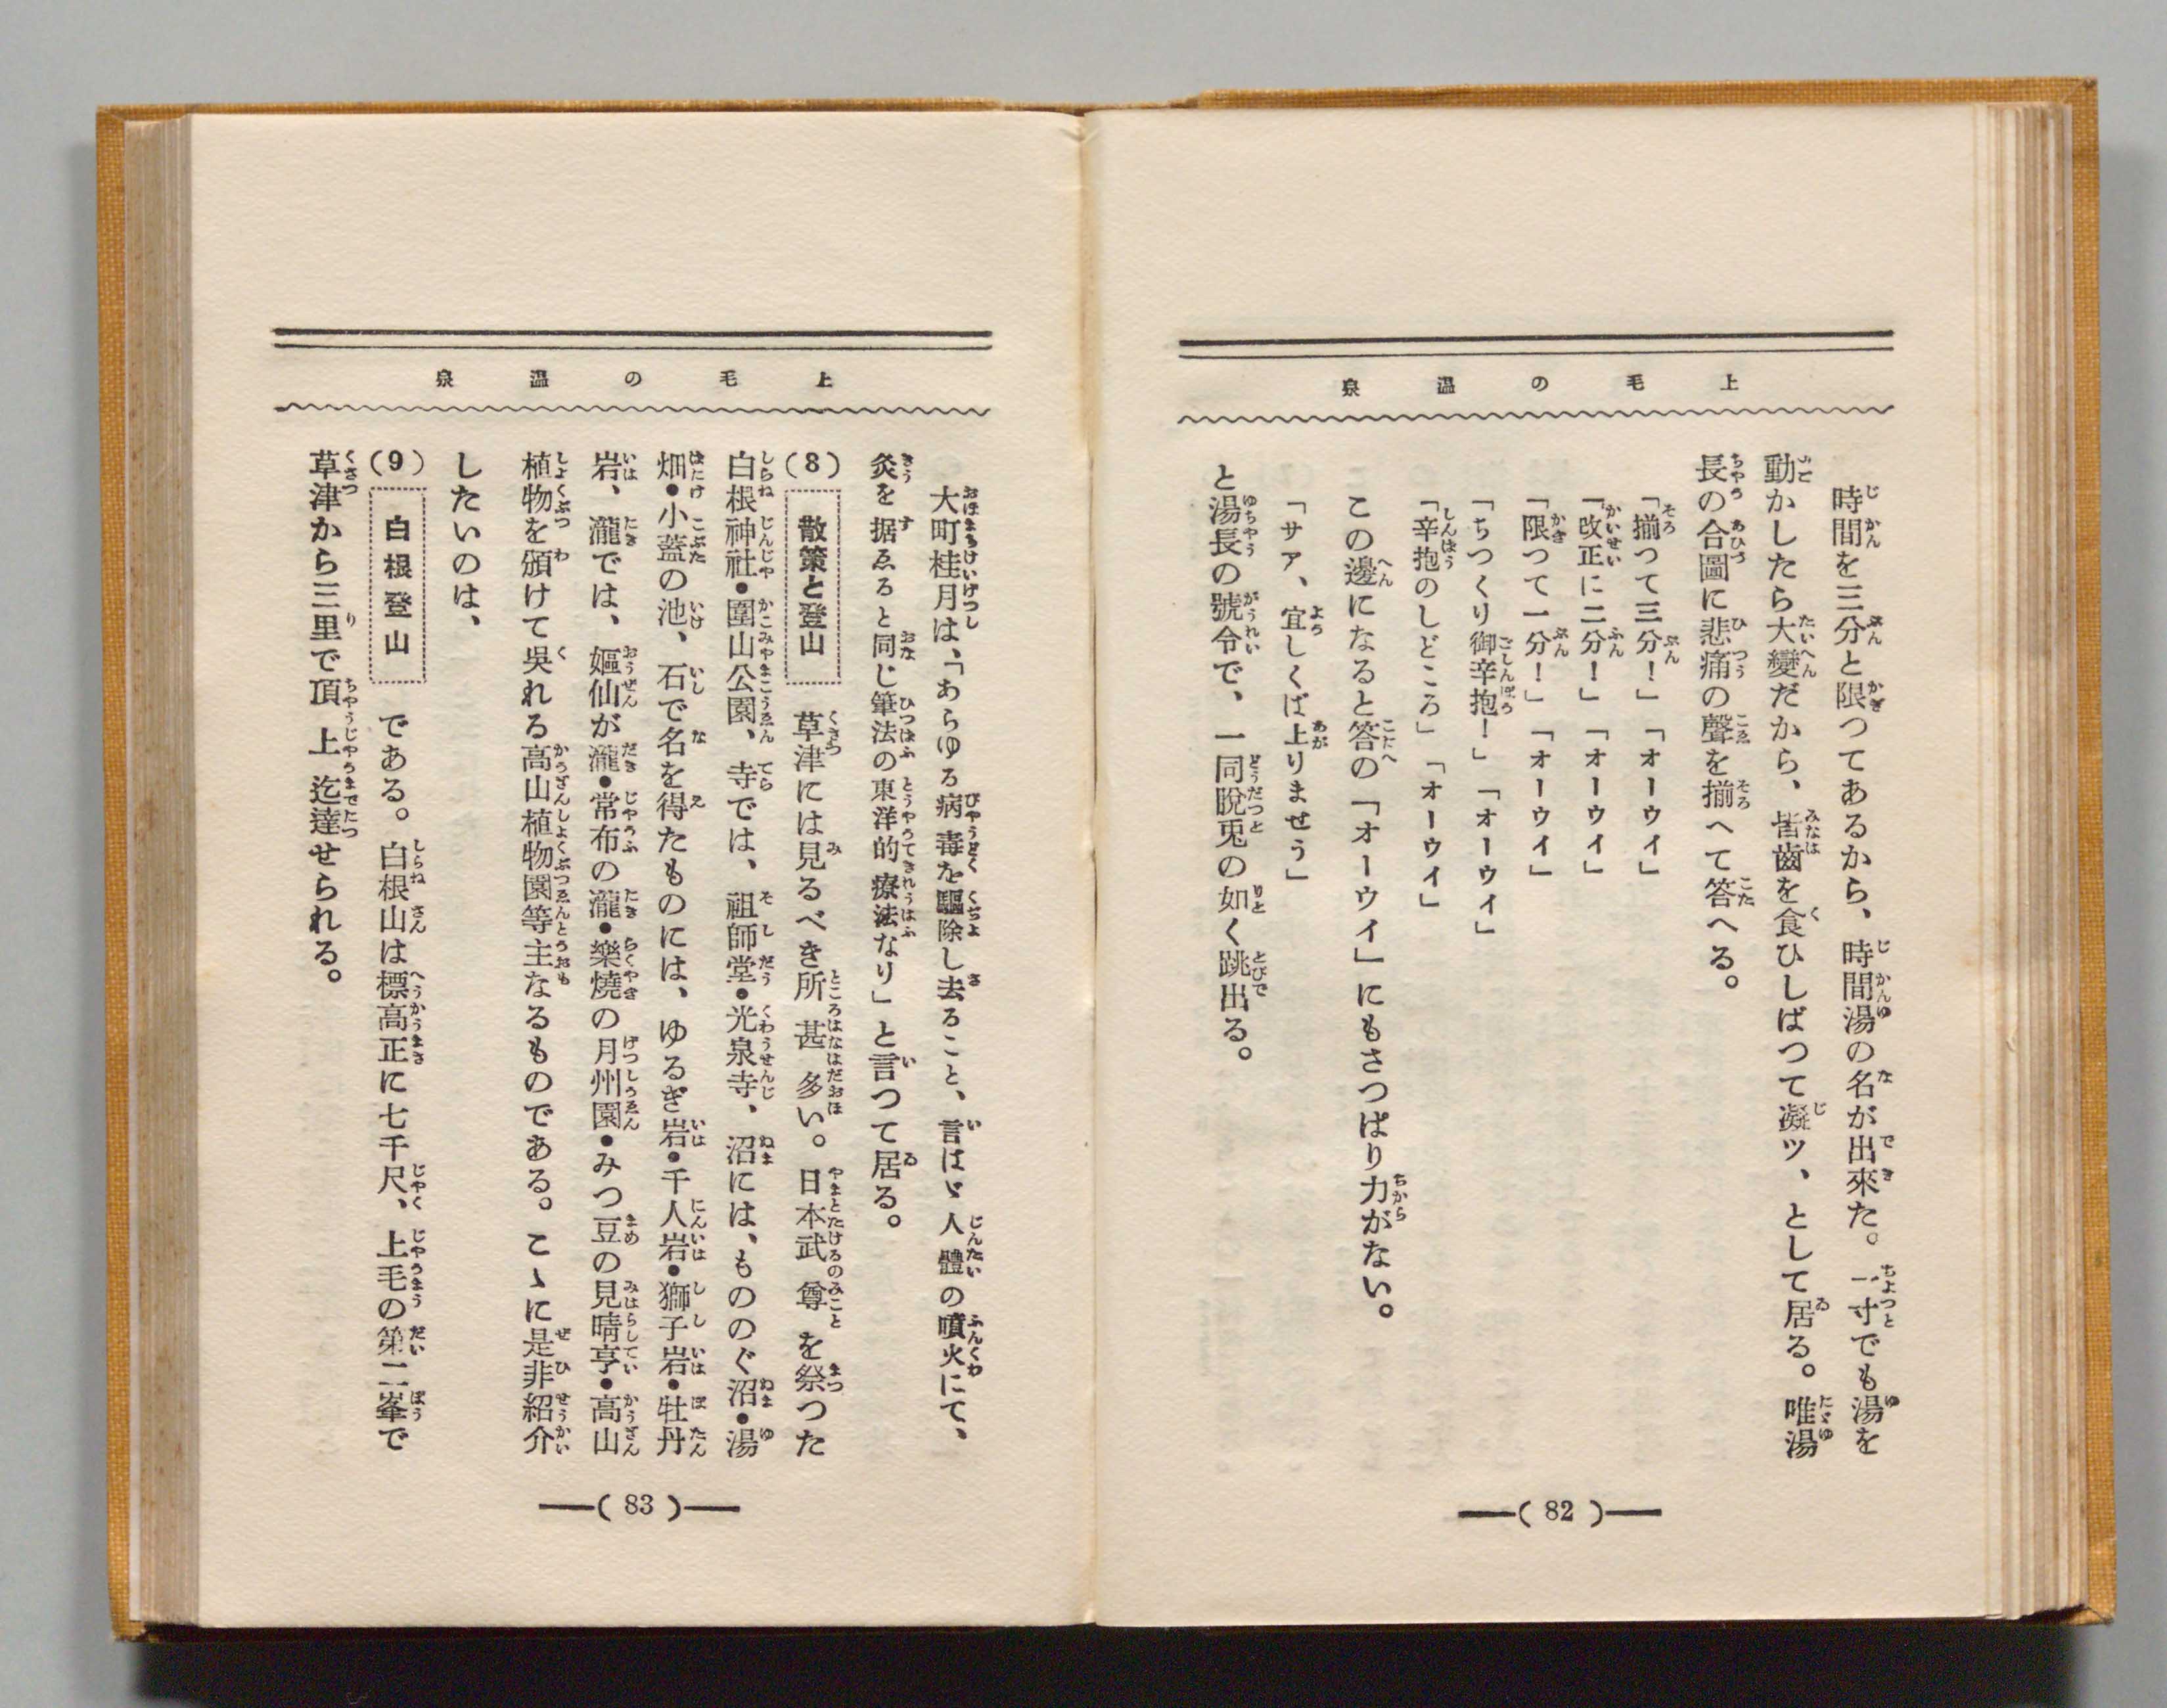 上毛の温泉
時間を三分と限つてあるから、時間湯の名が出來た。一寸でも湯を
動かしたら大變だから、皆齒を食ひしばつて凝ツ、として居る。唯湯
長の合圖に悲痛の聲を揃へて答へる。
「揃つて三分!」「オーウイ」
「改正に二分!」「オーウイ」
「限つて一分!」「オーウイ」
「ちつくり御辛抱!」「オーウイ」
「辛抱のしどころ」「オーウイ」
この邊になると答の「オーウイ」にもさつぱり力がない。
「サア、宜しくば上りませう」
と湯長の號令で、一同脫兎の如く跳出る。
(82)
上毛の温泉
大町桂月は、「あらゆる病毒を驅除し去ること、言はゞ人體の噴火にて、
灸を据ゑると同じ筆法の東洋的療法なり」と言つて居る。
(8) 散策と登山 草津には見るべき所甚多い。日本武尊を祭つた
白根神社•圍山公園、寺では、祖師堂•光泉寺、沼には、もののぐ沼•湯
畑•小蓋の池、石で名を得たものには、ゆるぎ岩•千人岩•獅子岩•牡丹
岩、瀧では、嫗仙が瀧•常布の瀧•樂燒の月州園•みつ豆の見晴亭•高山
植物を頒けて吳れる高山植物園等主なるものである。こゝに是非紹介
したいのは、
(9) 白根登山 である。白根山は標高正に七千尺、上毛の第二峯で
草津から三里で頂上迄達せられる。
(83)